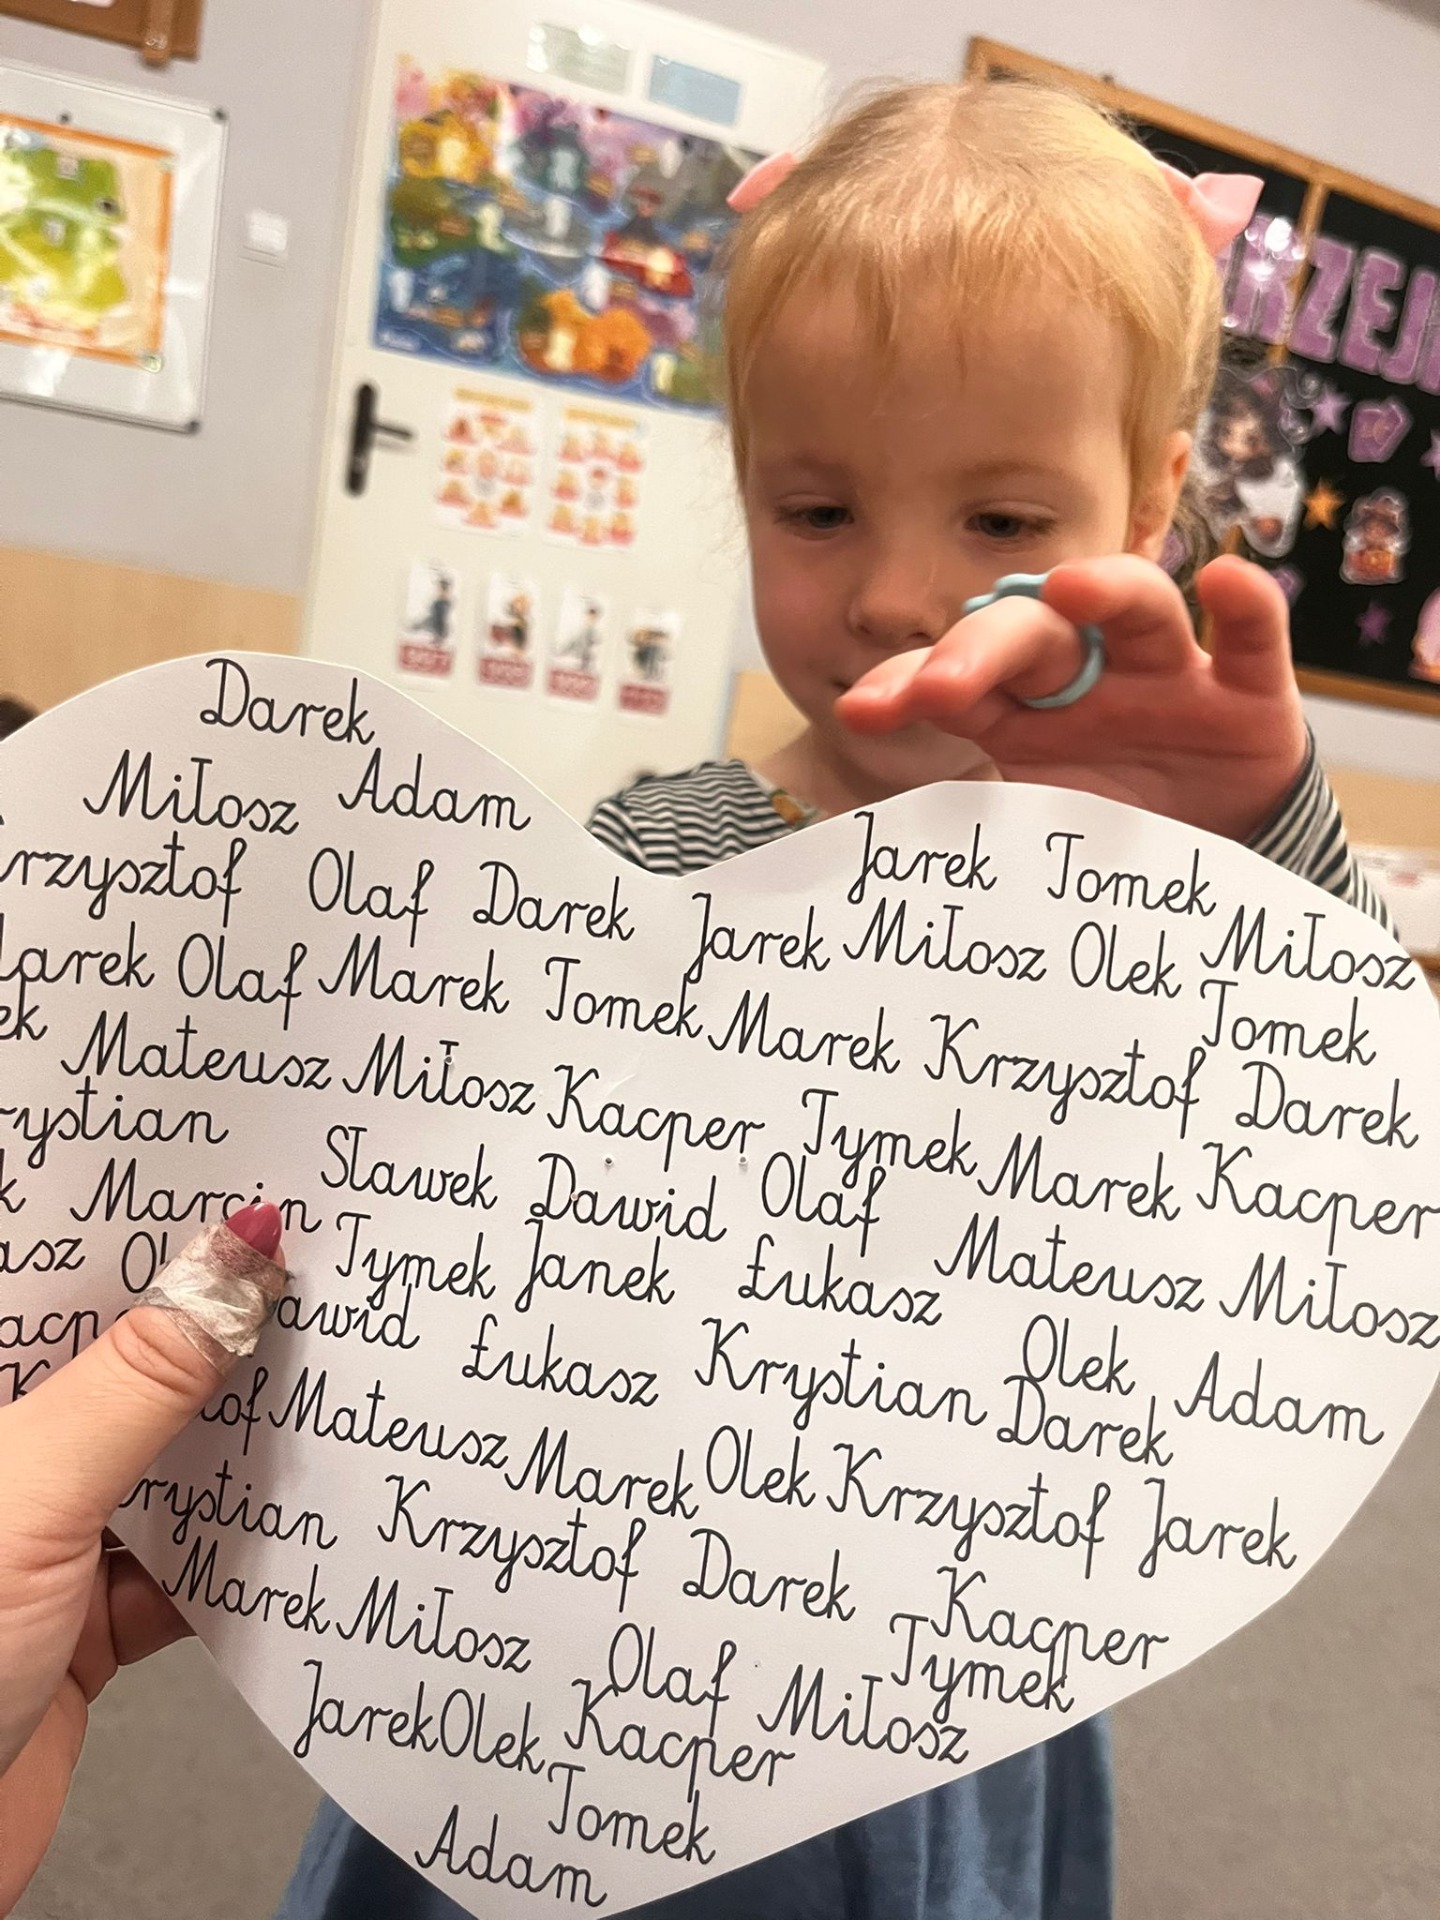 RZEJ
Darek
Miłosz Adam
rzysztof Olaf Darek
Jarek Tomek
Jarek Miłosz Olek Miłosz
arek Olaf Marek Tomek Marek Krzysztof Tomek
ek Mateusz Miłosz Kacper Tymek Marek Darek
rystian Sławek Dawid Olaf Kacper
k Marcin Tymek Janek Łukasz Mateusz Miłosz
asz Ol awid Łukasz Krystian Olek Adam
acp
K tof Mateusz Marek Olek Krzysztof Darek Jarek
rystian Krzysztof Darek Kacper
Marek Miłosz Olaf Miłosz Tymek
Jarek Olek Kacper
Tomek
Adam